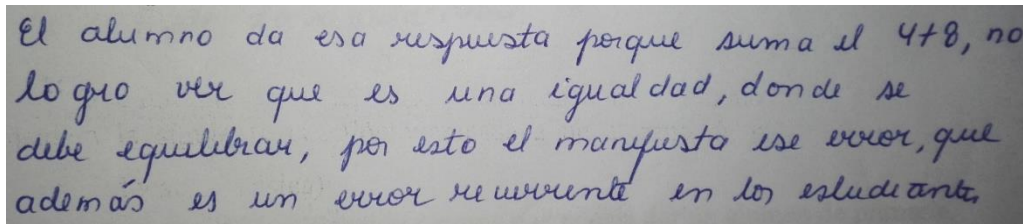 El alumno da esa respuesta porque suma el 4+8, no
logro ver que es una igualdad, donde se
debe equilibrar, por esto el manifiesta ese error, que
además es un error recurrente en los estudiantes